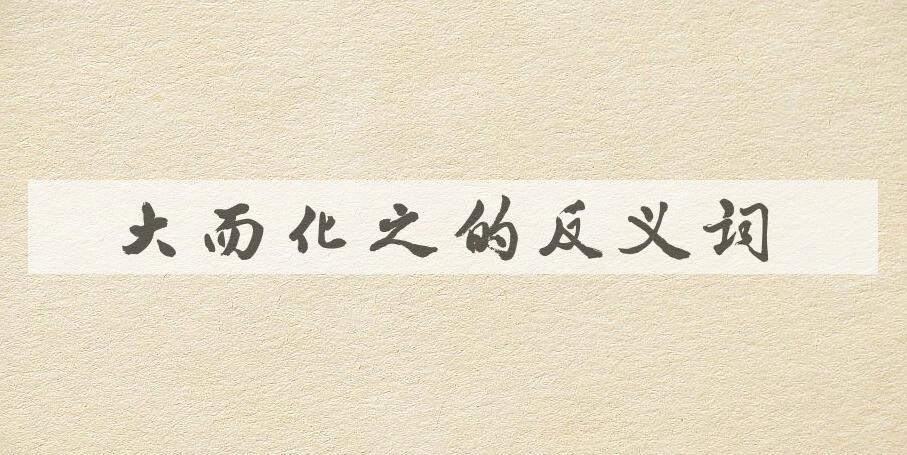 大而化之的反义词